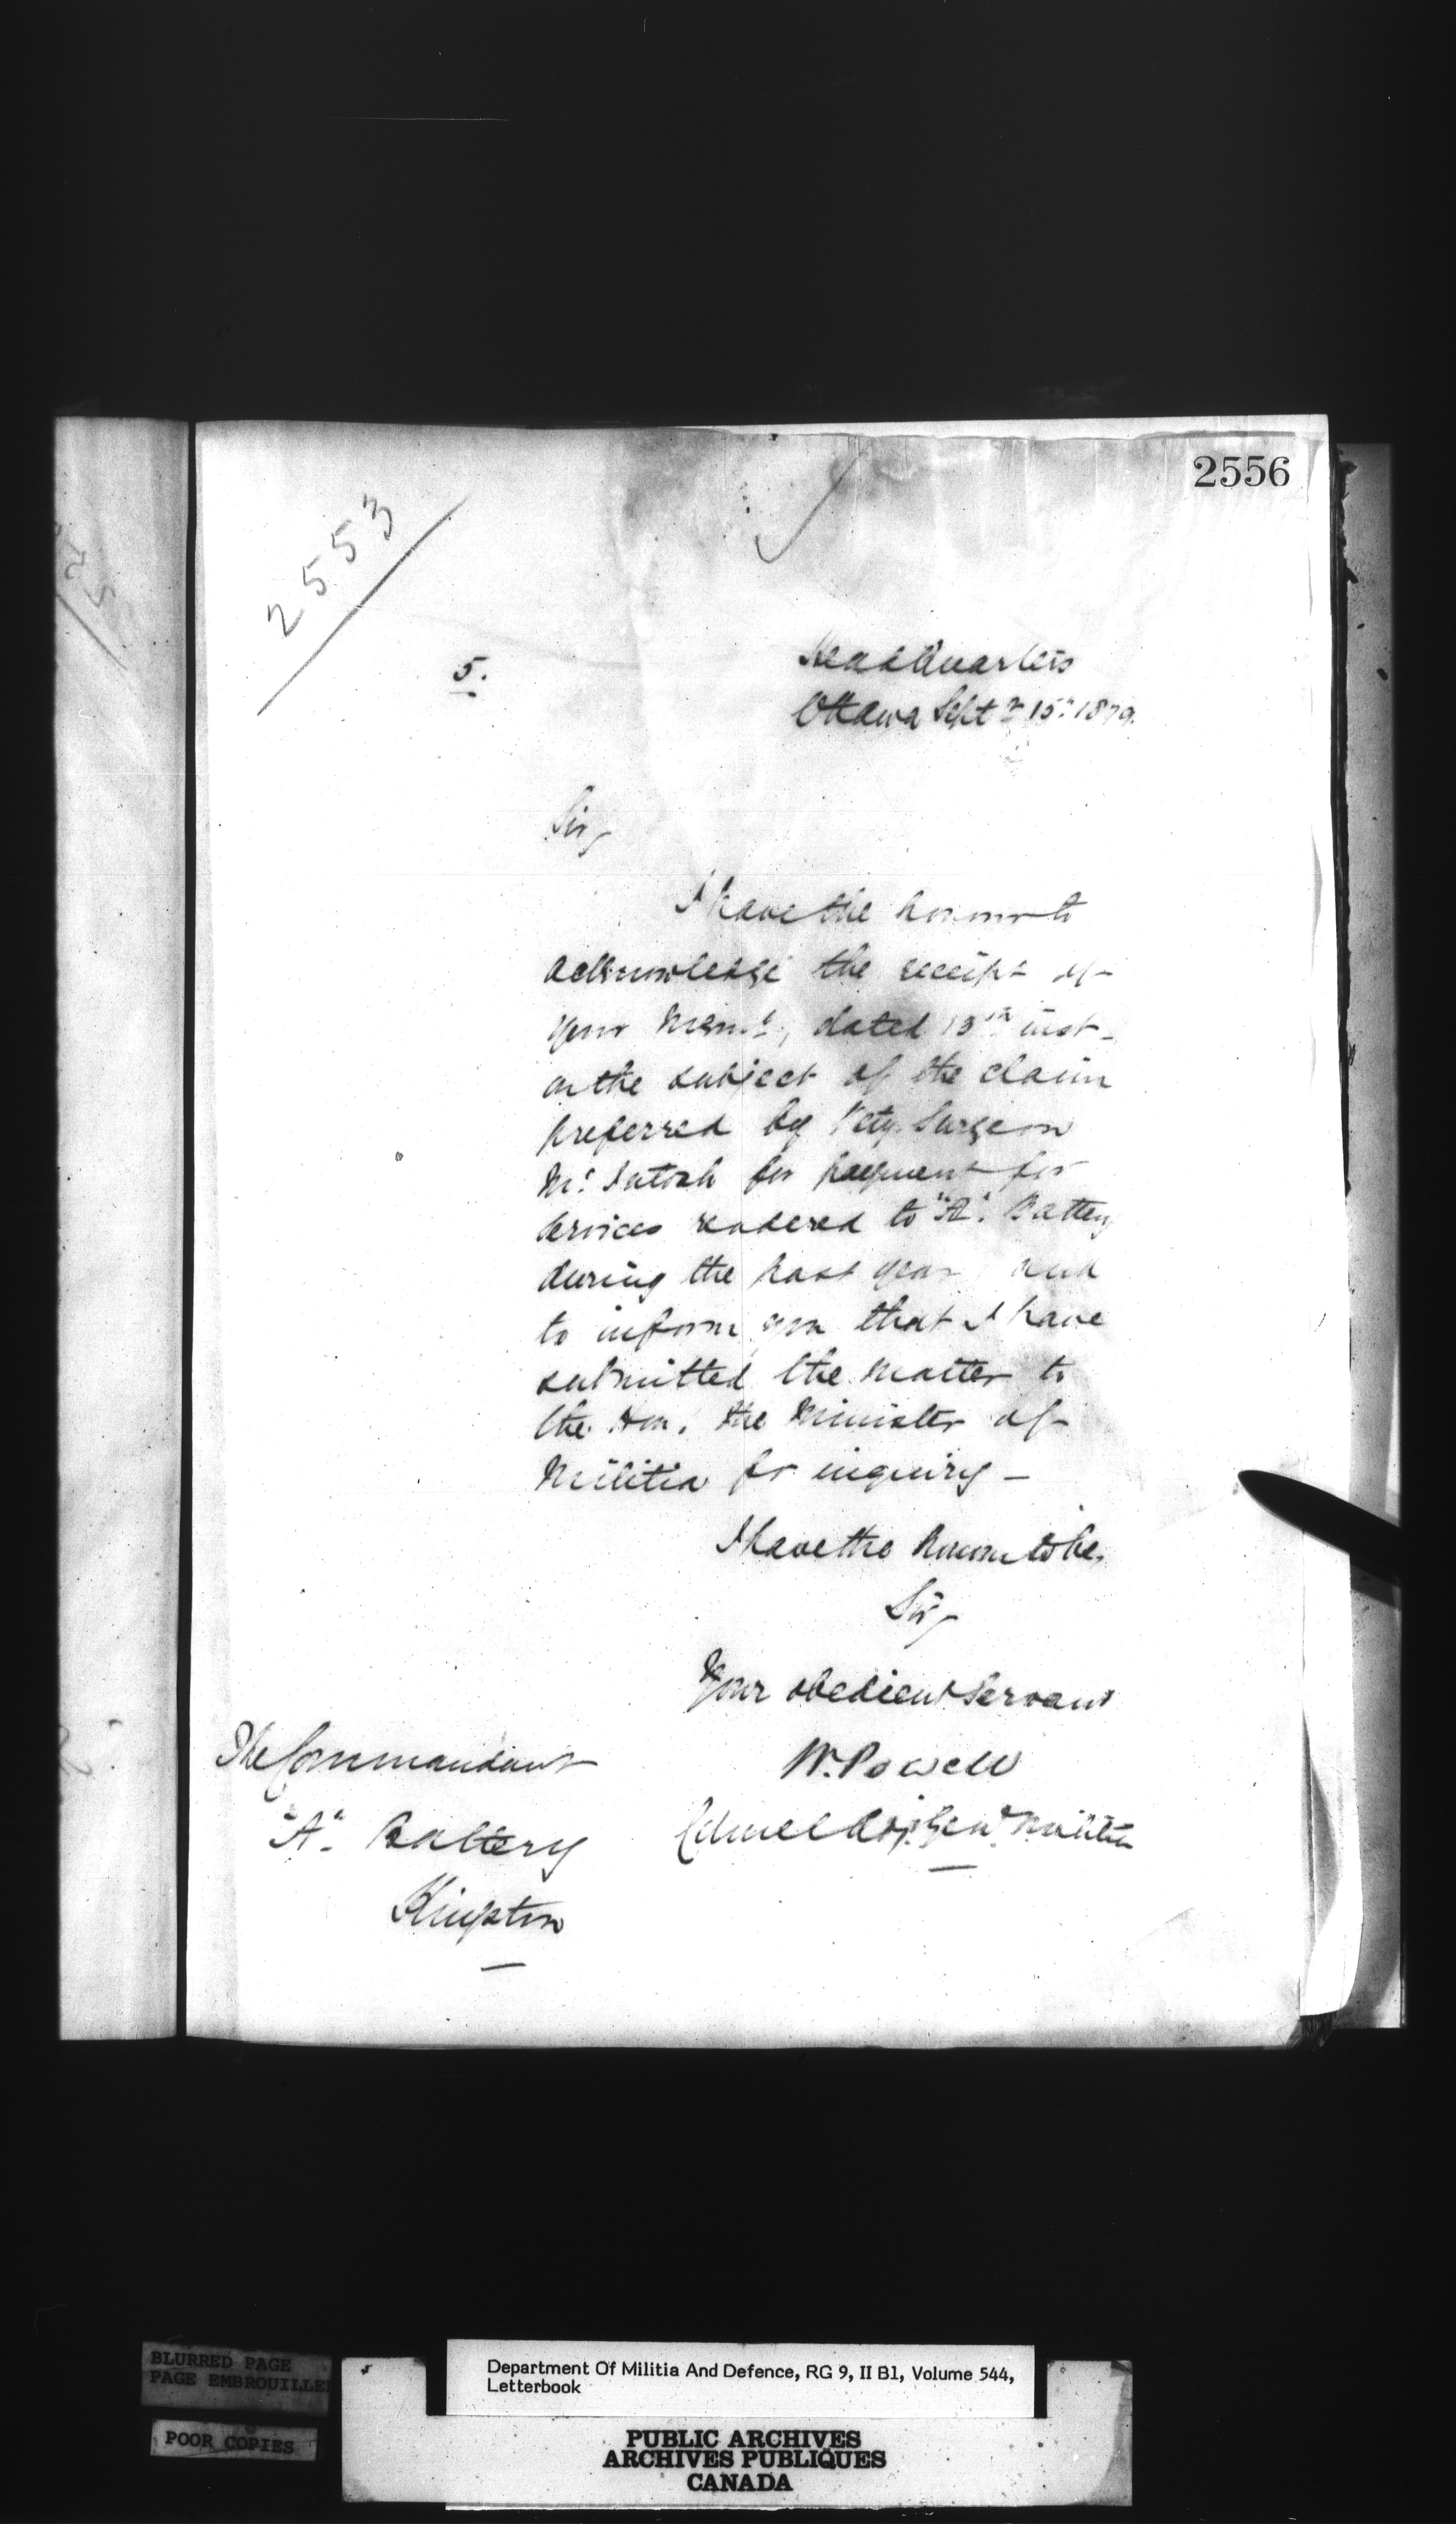 2556
2553
5.
Head Quarters
Ottawa Septr 15th 1879.
Sir,
I have the honour to
acknowledge the receipt of
your Memo, dated 13th inst.
on the subject of the claim
preferred by Vety. Surgeon
Mc Intosh for payment for
services rendered to "A". Battery
during the past year and
to inform you that I have
submitted the matter to
the Hon. the Minister of
Militia for inquiry —
I have the honour to be,
Sir,
Your obedient Servant
W. Powell
Colonel Adj. Genl Militia
The Commandant
"A". Battery
Kingston
BLURRED PAGE
PAGE EMBROUILLEE
POOR COPIES
Department Of Militia And Defence, RG 9, II B1, Volume 544,
Letterbook
PUBLIC ARCHIVES
ARCHIVES PUBLIQUES
CANADA